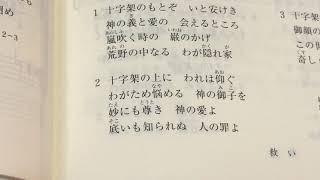 1 十字架のもとぞ いと安けき
神の義と愛の 会えるところ
嵐吹く時の 巌のかげ
荒野の中なる わが隠れ家
2 十字架の上に われは仰ぐ
わがため悩める 神の御子を
妙にも尊き 神の愛よ
底いも知られぬ 人の罪よ
救い
3 十
御顔の
この世
奇し
2-3
め